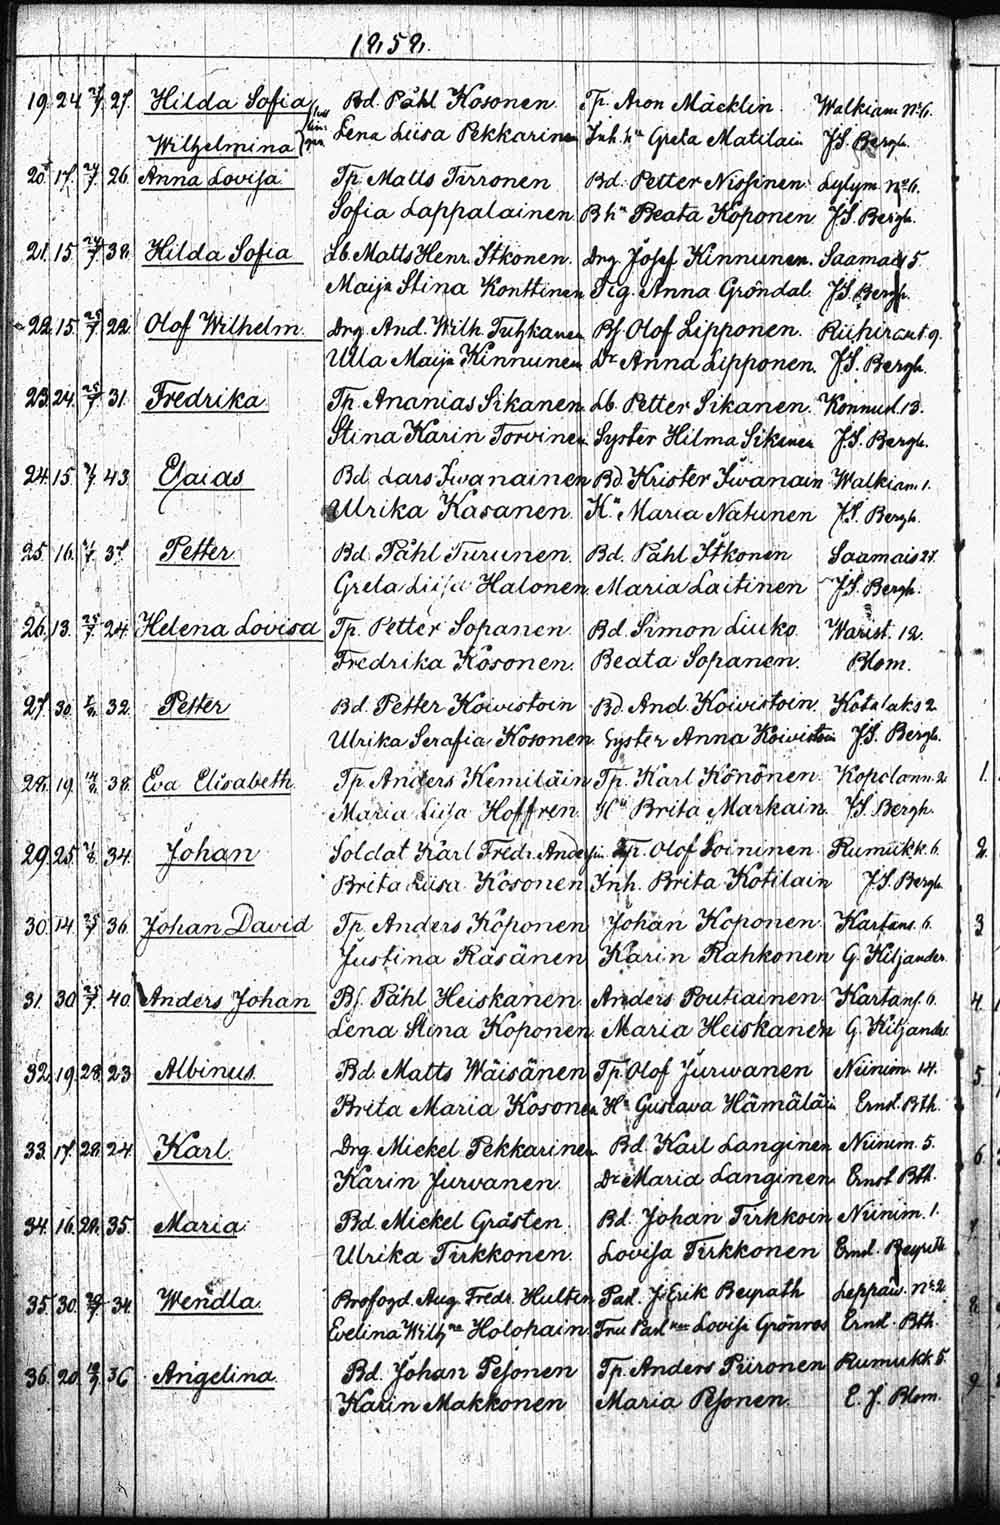 1858.
19. 24. 27. Hilda Sofia Bd. Påhl Kosonen Tp. Aron Mäcklin Walkiam. No 6.
Wilhelmina Lena Liisa Pekkarinen Inh. hu Greta Matilain J.S. Bergh.
20. 17. 26. Anna Lovisa Tp. Matts Tirronen Bd. Petter Nissinen Lylym. no 6.
Sofia Lappalainen B hu Beata Koponen J.S. Bergh.
21. 15. 38. Hilda Sofia Lb. Matts Henr. Itkonen. Drg. Josef Kinnunen. Saamais 5
Maija Stina Konttinen Pig. Anna Gröndal. J.S. Bergh.
22. 15. 22. Olof Wilhelm. Drg. And. Wilh. Tuhkanen Bs Olof Lipponen. Riihiraut. 9.
Ulla Maija Kinnunen Dr Anna Lipponen. J.S. Bergh.
23. 24. 31. Fredrika Tp. Ananias Sikanen. Lb. Petter Sikanen. Konnus. 13.
Stina Karin Torvinen Syster Hilma Sikanen J.S. Bergh.
24. 15. 43. Esaias Bd. Lars Iwanainen Bd Krister Iwanain Walkiam. 1.
Ulrika Kasanen. Hu Maria Natunen J.S. Bergh.
25. 16. 37. Petter Bd. Påhl Turunen. Bd. Påhl Itkonen Saamais 27.
Greta Liisa Halonen Maria Laitinen J.S. Bergh.
26. 13. 24. Helena Lovisa Tp. Petter Sopanen Bd. Simon Liuko. Warist. 12.
Fredrika Kosonen. Beata Sopanen. Blom.
27. 30. 32. Petter Bd. Petter Koivistoin Bd. And. Koivistoin. Kotalaks 2.
Ulrika Serafia Kosonen. Syster Anna Koivistoin J.S. Bergh.
28. 19. 38. Eva Elisabeth Tp. Anders Kemiläin Tp. Karl Könönen Kopolann. 2. 1.
Maria Liisa Hoffren. Hu Brita Markain. J.S. Bergh.
29. 25. 34. Johan Soldat Karl Fredr. Tp. Olof Loininen. Rumukk. 6. 2.
Brita Liisa Kosonen Inh. Brita Kotilain J.S. Bergh.
30. 14. 36. Johan David Tp. Anders Koponen Johan Koponen Kartans. 6. 3
Justina Räsänen Karin Rahkonen G. Kiljander.
31. 30. 40. Anders Johan Bs. Påhl Heiskanen. Anders Poutiainen Kartans. 6. 4.
Lena Stina Koponen. Maria Heiskanen G. Kiljander.
32. 19. 28. 23 Albinus. Bd. Matts Wäisänen Tp. Olof Jurwanen Niinim. 14. 5.
Brita Maria Kosonen Hu Gustava Hämäläin Ernst. Bth.
33. 17. 28. 24. Karl. Drg. Mickel Pekkarinen. Bd. Karl Langinen Niinim. 5. 6.
Karin Jurvanen. Dr Maria Langinen Ernst Bth.
34. 16. 28. 35. Maria Bd. Mickel Gråsten. Bd. Johan Tirkkoin Niinim. 1. 7
Ulrika Tirkkonen. Lovisa Tirkkonen Ernst. Beyrath
35. 30. 34. Wendla. Brofogd. Aug. Fredr. Hulten Past. J. Erik Beyrath Leppäv. No 2. 8
Evelina Wilhna Holopain. Fru Past. Lovisa Grönros Ernst. Bth.
36. 20. 36 Angelina. Bd. Johan Pesonen Tp. Anders Piironen Rumukk 5. 9
Karin Makkonen Maria Pesonen. E. J. Blom.